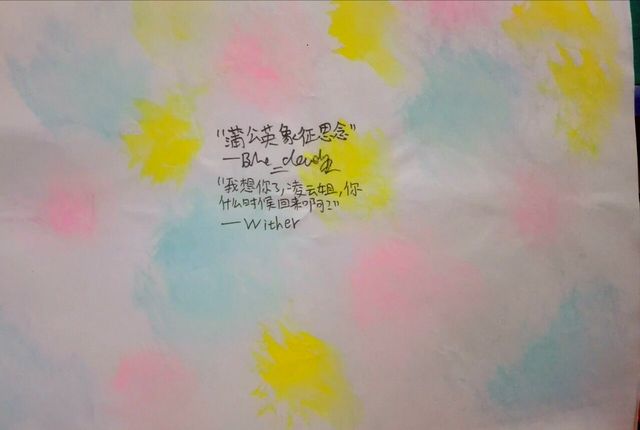 “蒲公英象征思念”
“我想你了,凌云姐,你
什么时候回来啊?”
—Wither